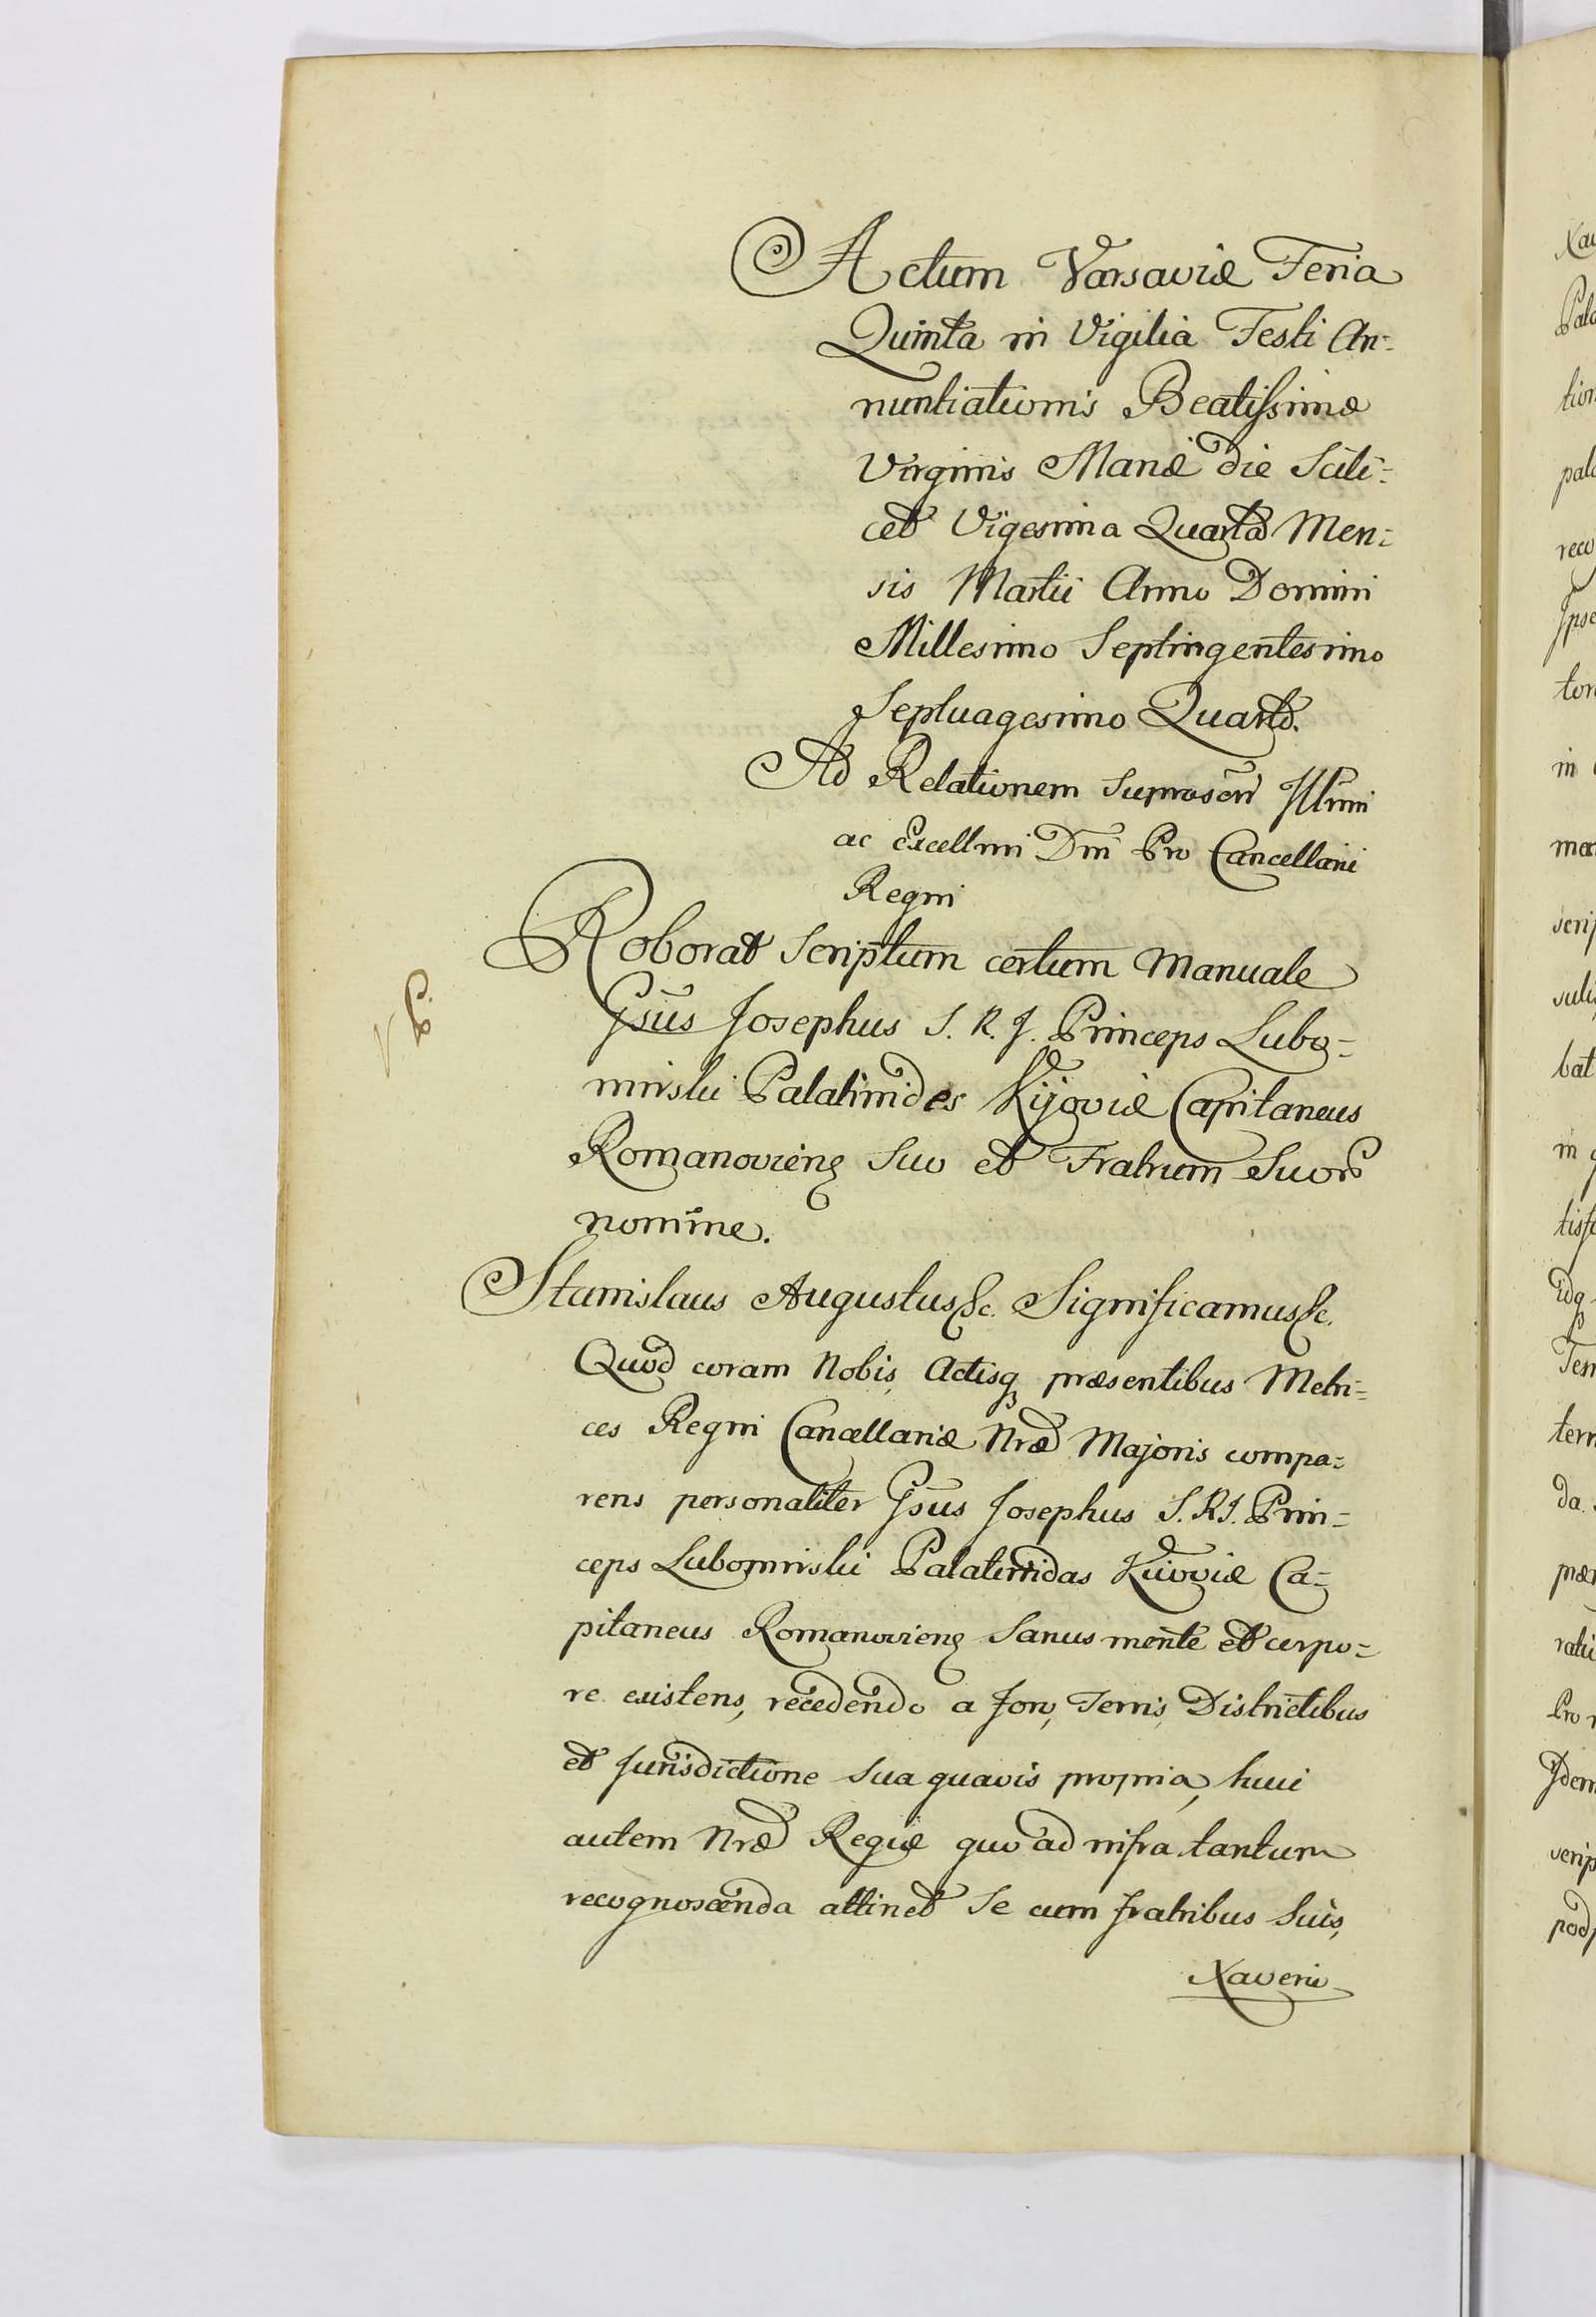 Actum Varsaviæ Feria
Quinta in Vigilia Festi An=
nuntiationis Beatissimæ
Virginis Mariæ die Scili=
cet Vigesima Quarta Men=
sis Martii Anno Domini
Millesimo Septingentesimo
Septuagesimo Quarto.
Ad Relationem suprascri Illmi
ac Excellmi Dni Pro Cancellarii
Regni
Roborat Scriptum certum Manuale
Gsus Josephus S. R. J. Princeps Lubo=
mirski Palatinides Kijoviæ Capitaneus
Romanoviens Suo et Fratrum Suor
nomine.
Stanislaus Augustus &c. Significamus &c.
Quod coram Nobis, Actisq præsentibus Metri=
ces Regni Cancellariæ Nræ Majoris compa=
rens personaliter Gsus Josephus S. R. J. Prin=
ceps Lubomirski Palatinidas Kiioviæ Ca=
pitaneus Romanoviens Sanus mente et corpo=
re existens, recedendo a Foro, Terris, Districtibus
et Jurisdictione sua quavis propria, huic
autem Nræ Regiæ quo ad infra tantum
recognoscenda attinet Se cum fratribus Suis,
Xaverio